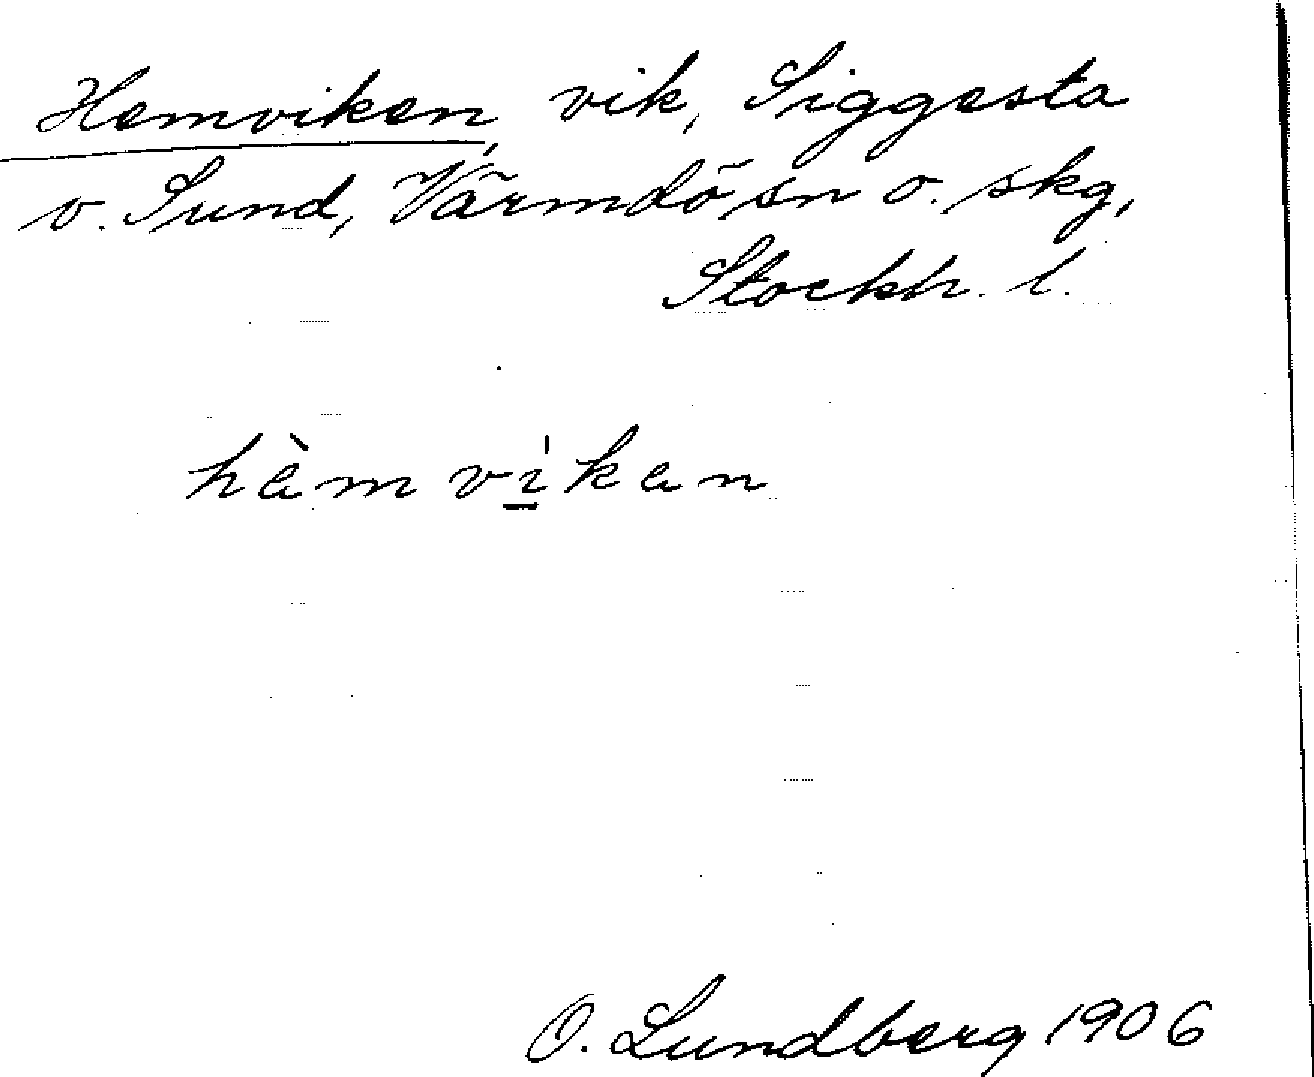 Hemviken, vik, Siggesta
v. Sund, Värmdö sn o. skg,
Stockh. l.
hèmvi̲ken
O. Lundberg 1906